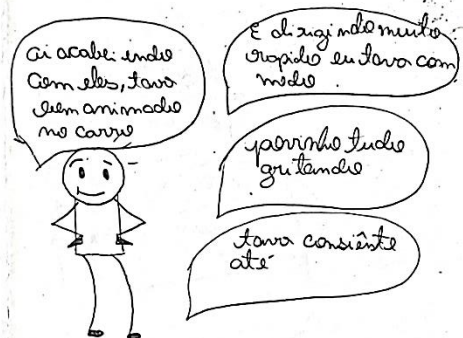 ai acabei indo
com eles, tava
bem animado
no carro
E dirigindo muito
rapido eu tava com
medo.
povinho tudo
gritando
tava consiênte
até